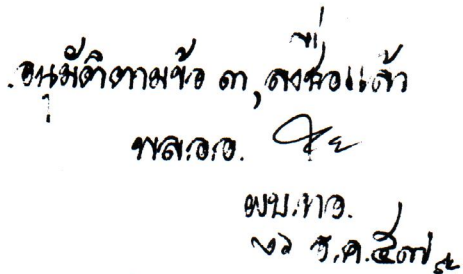 อนุมัติตามข้อ ๓, ลงชื่อแล้ว
พล.อ.อ.
ผบ.ทอ.
ธ.ค.๕๗